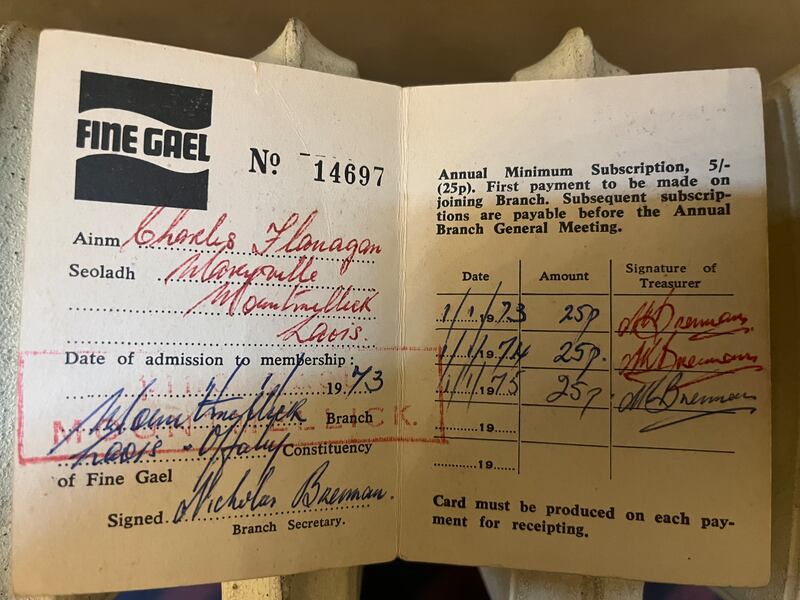 FINE GAEL
Nº 14697
Ainm Charles Flanagan
Seoladh Maryville
Mountmellick
Laois.
Date of admission to membership:
1/1/1973
Mountmellick Branch
MOUNTMELLICK.
Laois - Offaly Constituency
of Fine Gael
Signed Nicholas Brennan.
Branch Secretary.
Annual Minimum Subscription, 5/-
(25p). First payment to be made on
joining Branch. Subsequent subscrip-
tions are payable before the Annual
Branch General Meeting.
Date Amount Signature of
Treasurer
1/1/1973 25p M Brennan
1/1/1974 25p. M Brennan
1/1/1975 25p. M Brennan
19
19
Card must be produced on each pay-
ment for receipting.